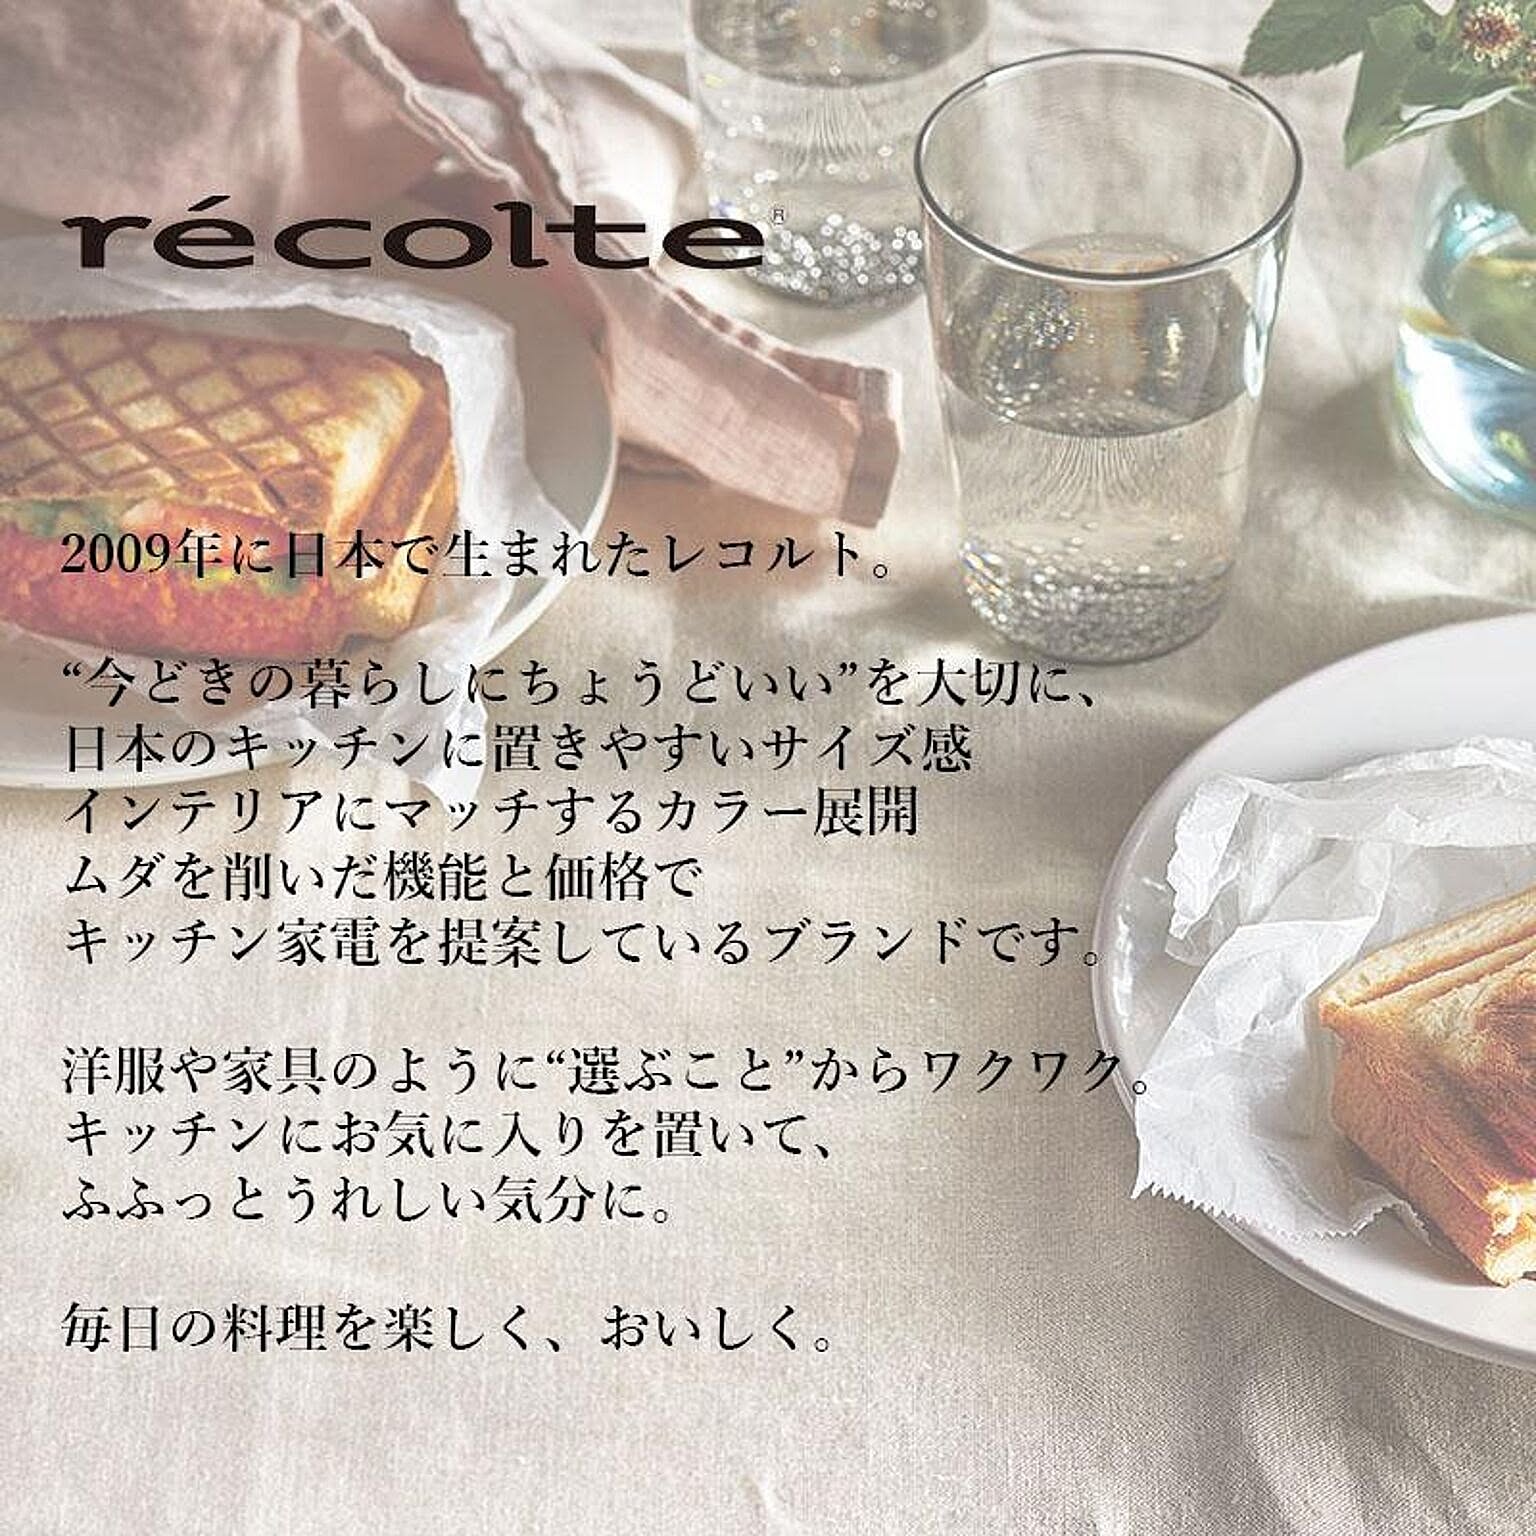 récolte®
2009年に日本で生まれたレコルト。
“今どきの暮らしにちょうどいい”を大切に、
日本のキッチンに置きやすいサイズ感
インテリアにマッチするカラー展開
ムダを削いだ機能と価格で
キッチン家電を提案しているブランドです。
洋服や家具のように“選ぶこと”からワクワク。
キッチンにお気に入りを置いて、
ふふっとうれしい気分に。
毎日の料理を楽しく、おいしく。